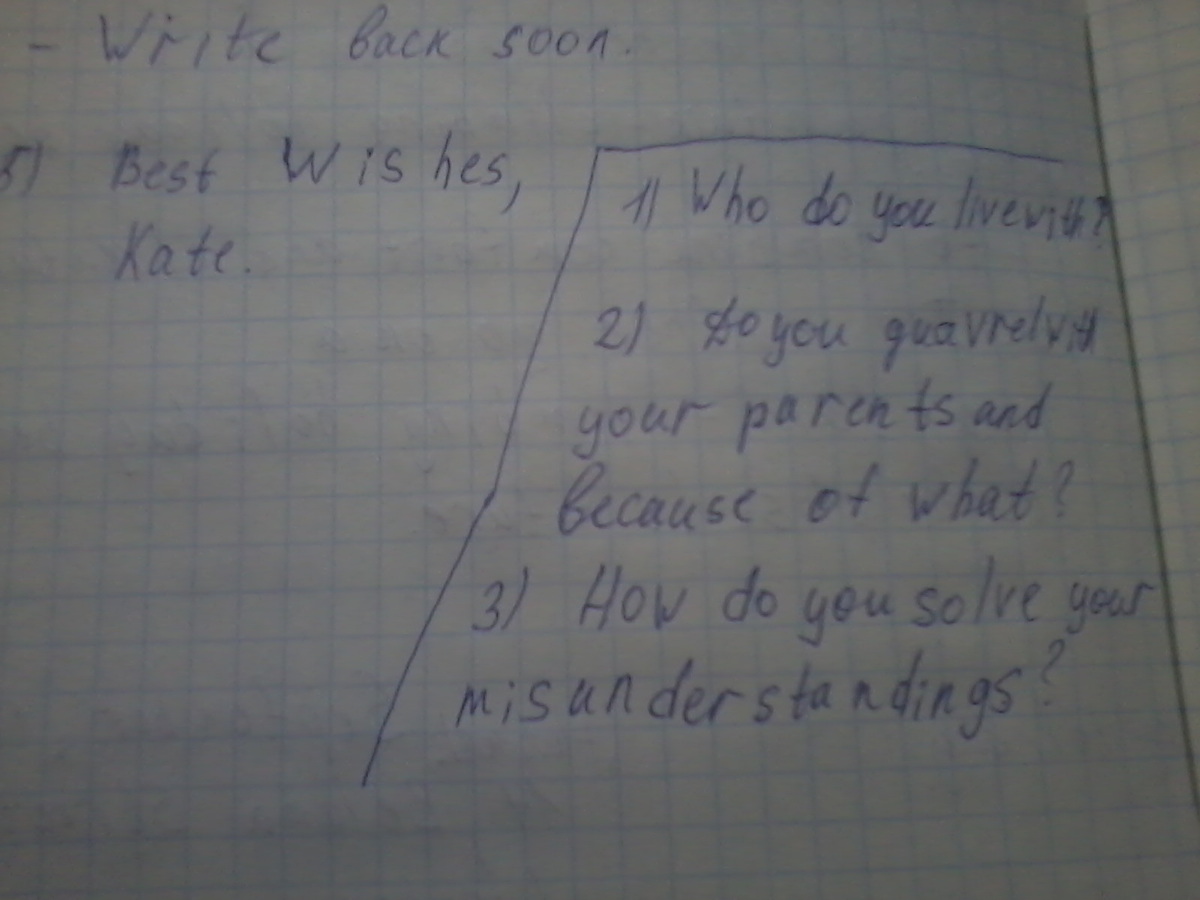 - Write back soon.
5) Best Wishes,
Kate.
1) Who do you live with?
2) Do you quavrel with
your parents and
because of what?
3) How do you solve your
misunderstandings?